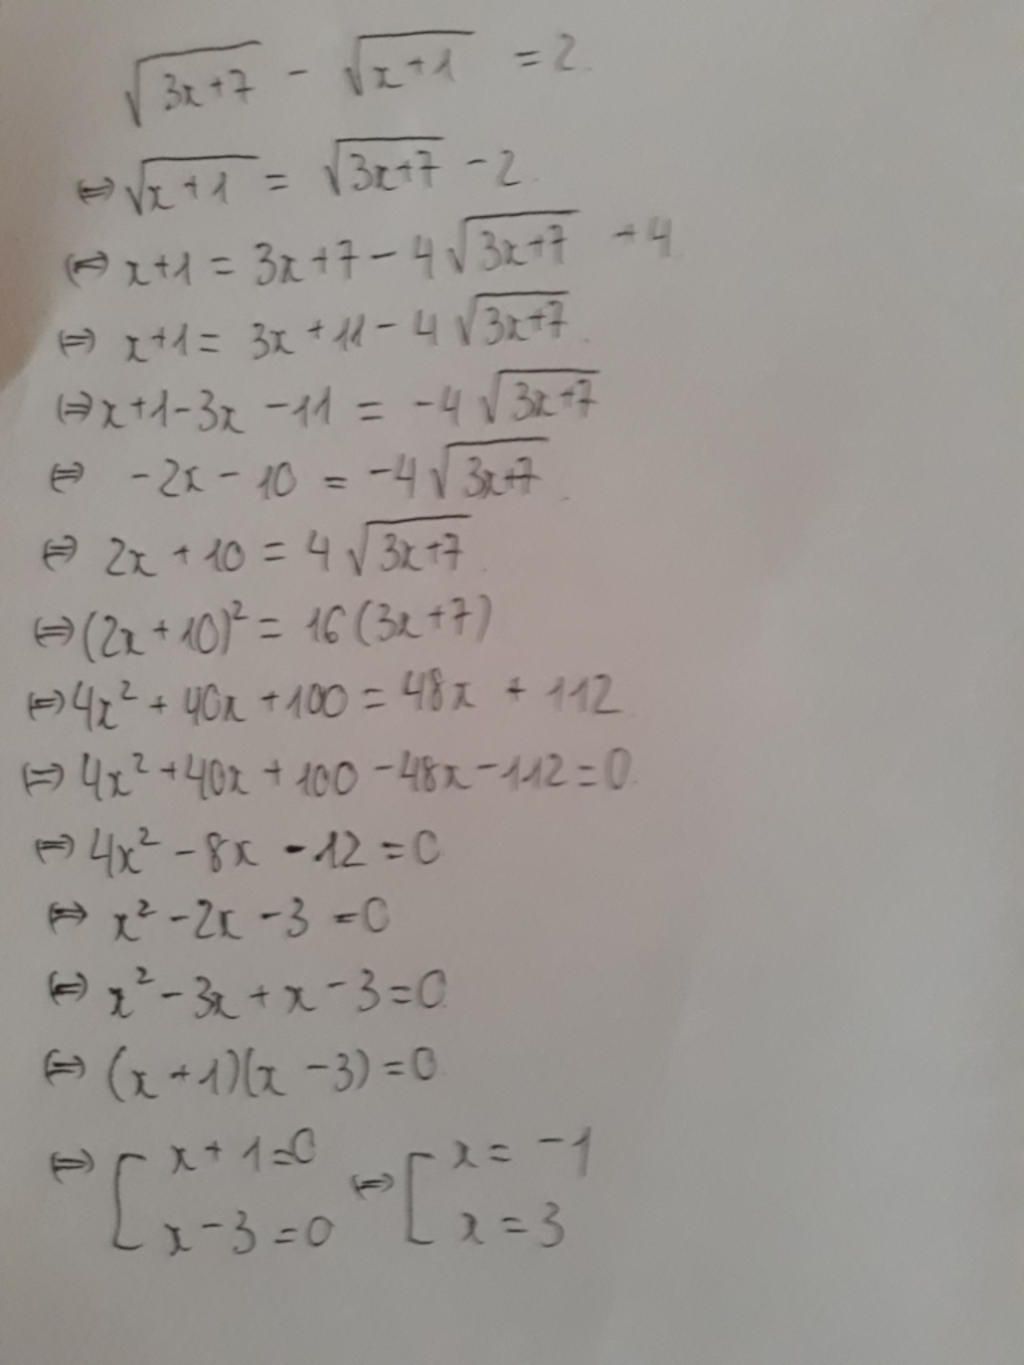 √(3x+7) - √(x+1) = 2.
⇔ √(x+1) = √(3x+7) - 2.
⇔ x+1 = 3x+7 - 4√(3x+7) + 4
⇔ x+1 = 3x+11 - 4√(3x+7).
⇔ x+1-3x-11 = -4√(3x+7)
⇔ -2x-10 = -4√(3x+7).
⇔ 2x+10 = 4√(3x+7).
⇔ (2x+10)² = 16(3x+7)
⇔ 4x²+40x+100 = 48x+112
⇔ 4x²+40x+100-48x-112=0.
⇔ 4x²-8x-12=0
⇔ x²-2x-3=0
⇔ x²-3x+x-3=0.
⇔ (x+1)(x-3)=0.
⇔ [ x+1=0 ⇔ [ x=-1
x-3=0 x=3